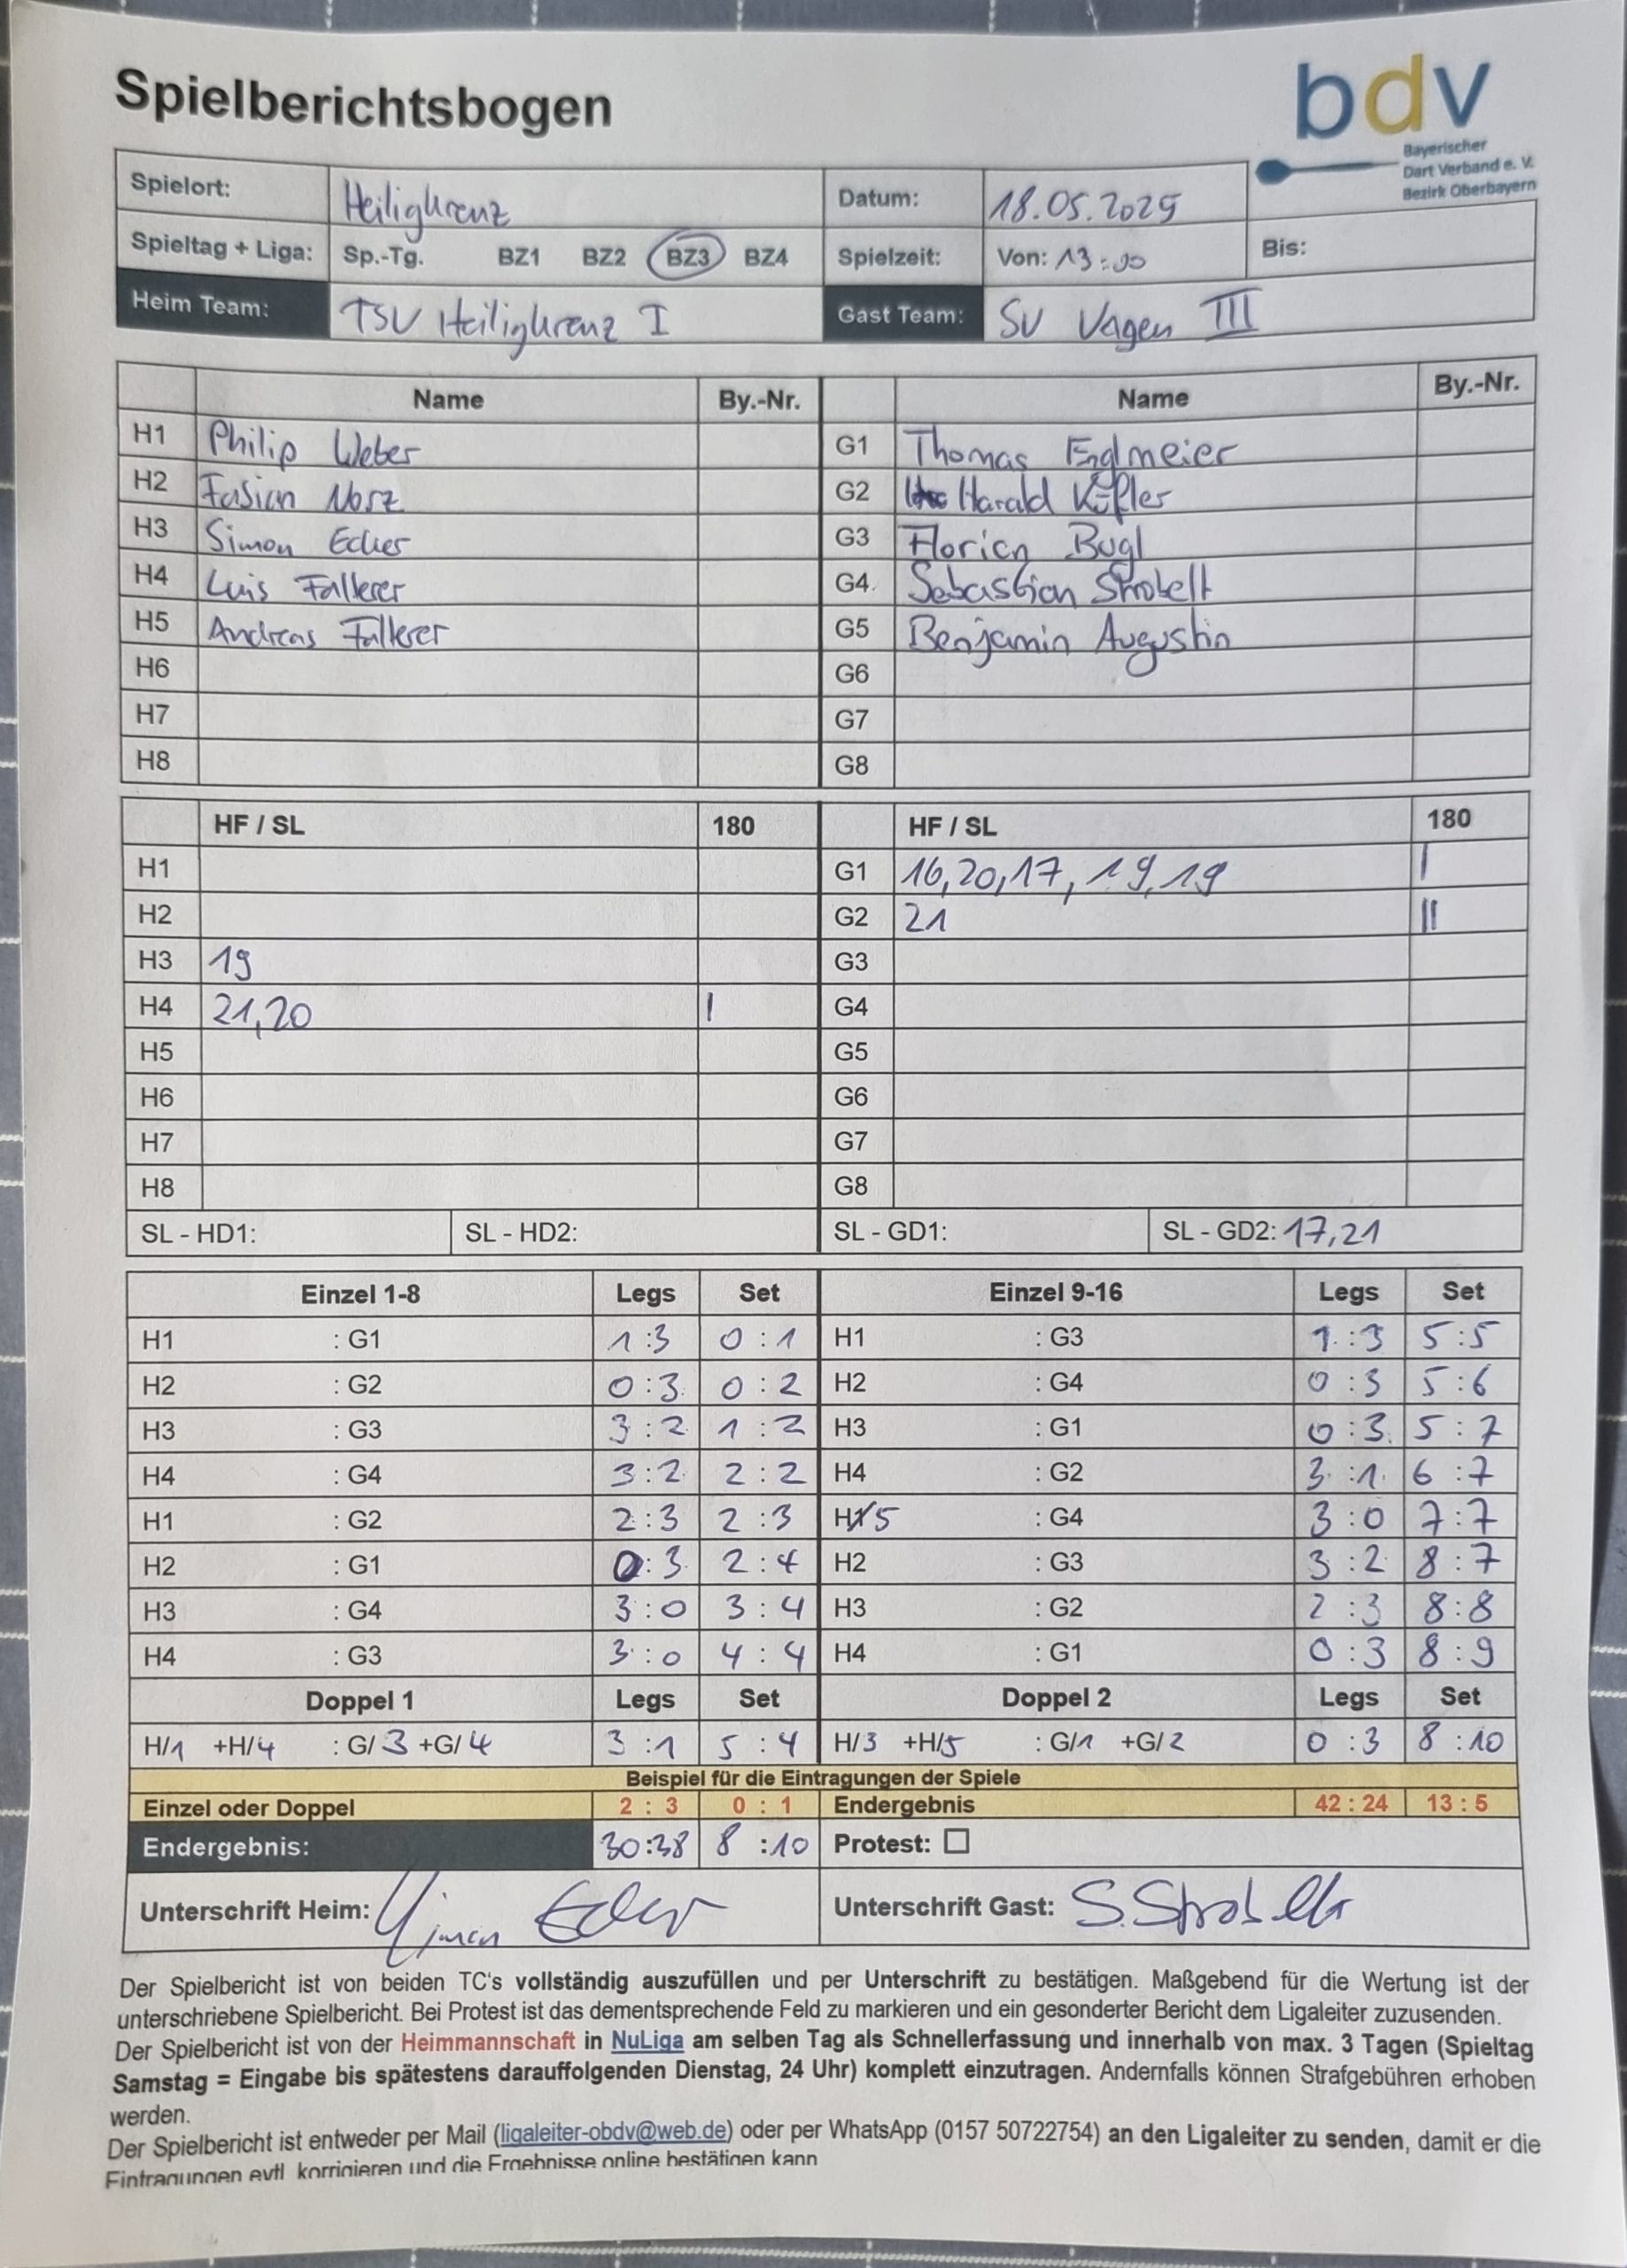 Spielberichtsbogen
bdv
Bayerischer
Dart Verband e. V.
Bezirk Oberbayern
Spielort: Heiligkreuz Datum: 18.05.2025
Spieltag + Liga: Sp.-Tg. BZ1 BZ2 BZ3 BZ4 Spielzeit: Von: 13:00 Bis:
Heim Team: TSV Heiligkreuz I Gast Team: SV Vagen III
Name By.-Nr. Name By.-Nr.
H1 Philip Weber G1 Thomas Englmeier
H2 Fabian Norz G2 Harald Küfler
H3 Simon Ecker G3 Florian Bugl
H4 Luis Fallerer G4 Sebastian Strobelt
H5 Andreas Fallerer G5 Benjamin Augustin
H6 G6
H7 G7
H8 G8
HF / SL 180 HF / SL 180
H1 G1 16,20,17,19,19 I
H2 G2 21 II
H3 19 G3
H4 21,20 I G4
H5 G5
H6 G6
H7 G7
H8 G8
SL - HD1: SL - HD2: SL - GD1: SL - GD2: 17,21
Einzel 1-8 Legs Set Einzel 9-16 Legs Set
H1 : G1 1:3 0:1 H1 : G3 1:3 5:5
H2 : G2 0:3 0:2 H2 : G4 0:3 5:6
H3 : G3 3:2 1:2 H3 : G1 0:3 5:7
H4 : G4 3:2 2:2 H4 : G2 3:1 6:7
H1 : G2 2:3 2:3 H5 : G4 3:0 7:7
H2 : G1 0:3 2:4 H2 : G3 3:2 8:7
H3 : G4 3:0 3:4 H3 : G2 2:3 8:8
H4 : G3 3:0 4:4 H4 : G1 0:3 8:9
Doppel 1 Legs Set Doppel 2 Legs Set
H/1 +H/4 : G/3 +G/4 3:1 5:4 H/3 +H/5 : G/1 +G/2 0:3 8:10
Beispiel für die Eintragungen der Spiele
Einzel oder Doppel 2 : 3 0 : 1 Endergebnis 42 : 24 13 : 5
Endergebnis: 30:38 8:10 Protest: ☐
Unterschrift Heim: Simon Ecker Unterschrift Gast: S. Strobelt
Der Spielbericht ist von beiden TC's vollständig auszufüllen und per Unterschrift zu bestätigen. Maßgebend für die Wertung ist der
unterschriebene Spielbericht. Bei Protest ist das dementsprechende Feld zu markieren und ein gesonderter Bericht dem Ligaleiter zuzusenden.
Der Spielbericht ist von der Heimmannschaft in NuLiga am selben Tag als Schnellerfassung und innerhalb von max. 3 Tagen (Spieltag
Samstag = Eingabe bis spätestens darauffolgenden Dienstag, 24 Uhr) komplett einzutragen. Andernfalls können Strafgebühren erhoben
werden.
Der Spielbericht ist entweder per Mail (ligaleiter-obdv@web.de) oder per WhatsApp (0157 50722754) an den Ligaleiter zu senden, damit er die
Eintragungen evtl. korrigieren und die Ergebnisse online bestätigen kann